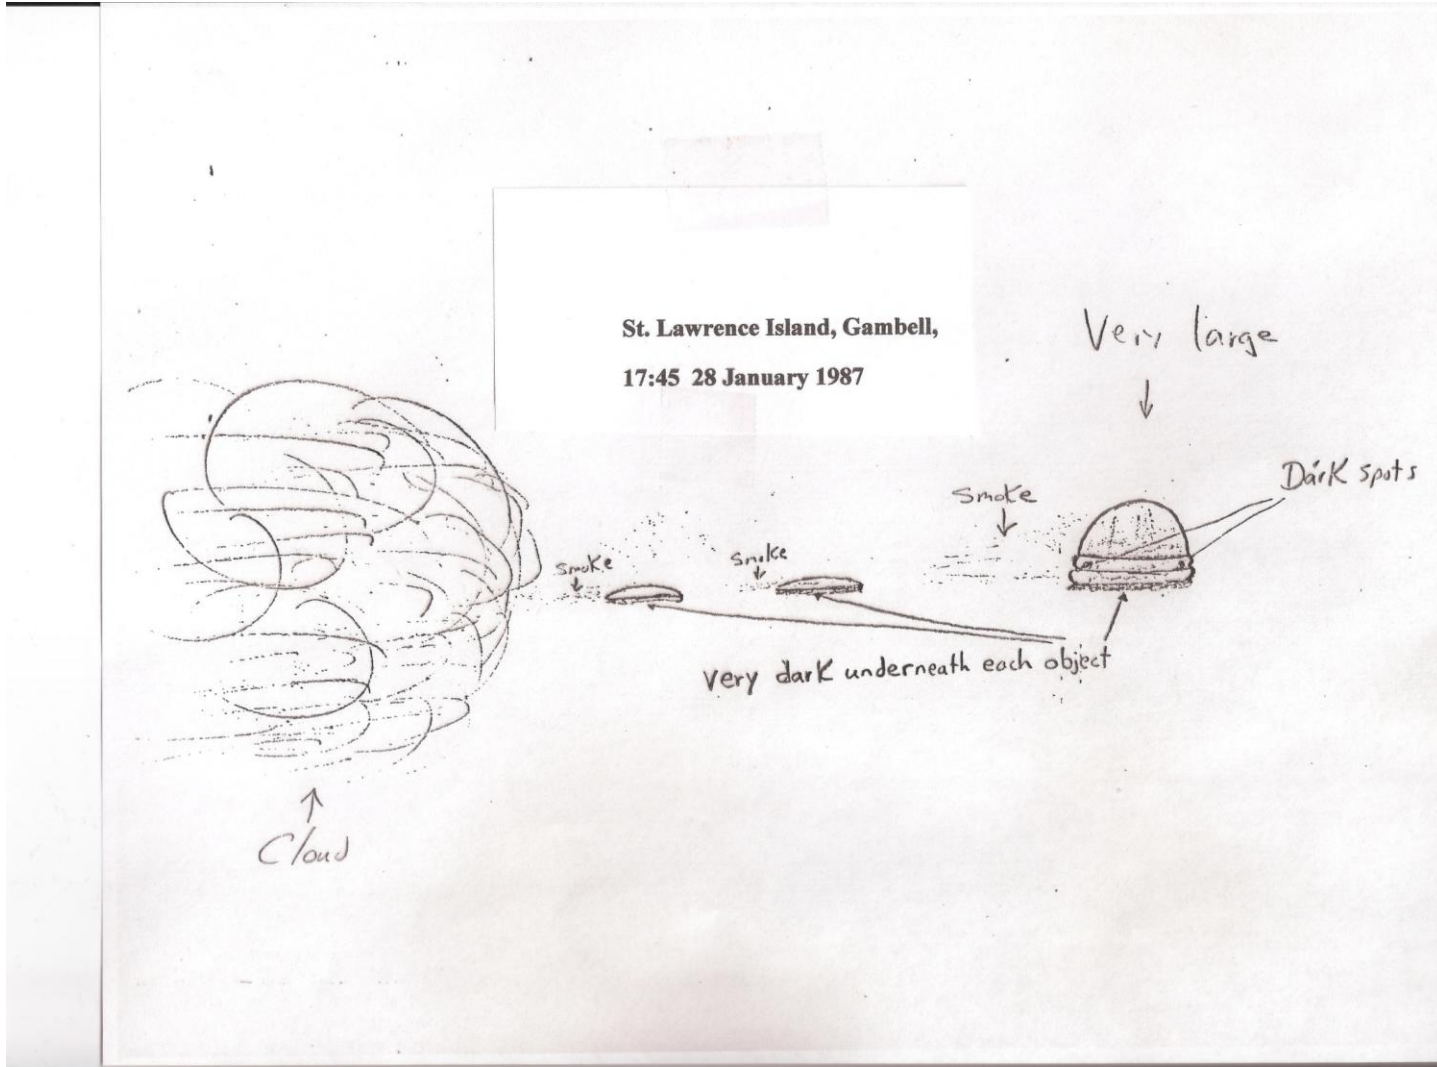 St. Lawrence Island, Gambell,
17:45 28 January 1987
Very large
Dark spots
Smoke
Smoke
Smoke
Very dark underneath each object
Cloud